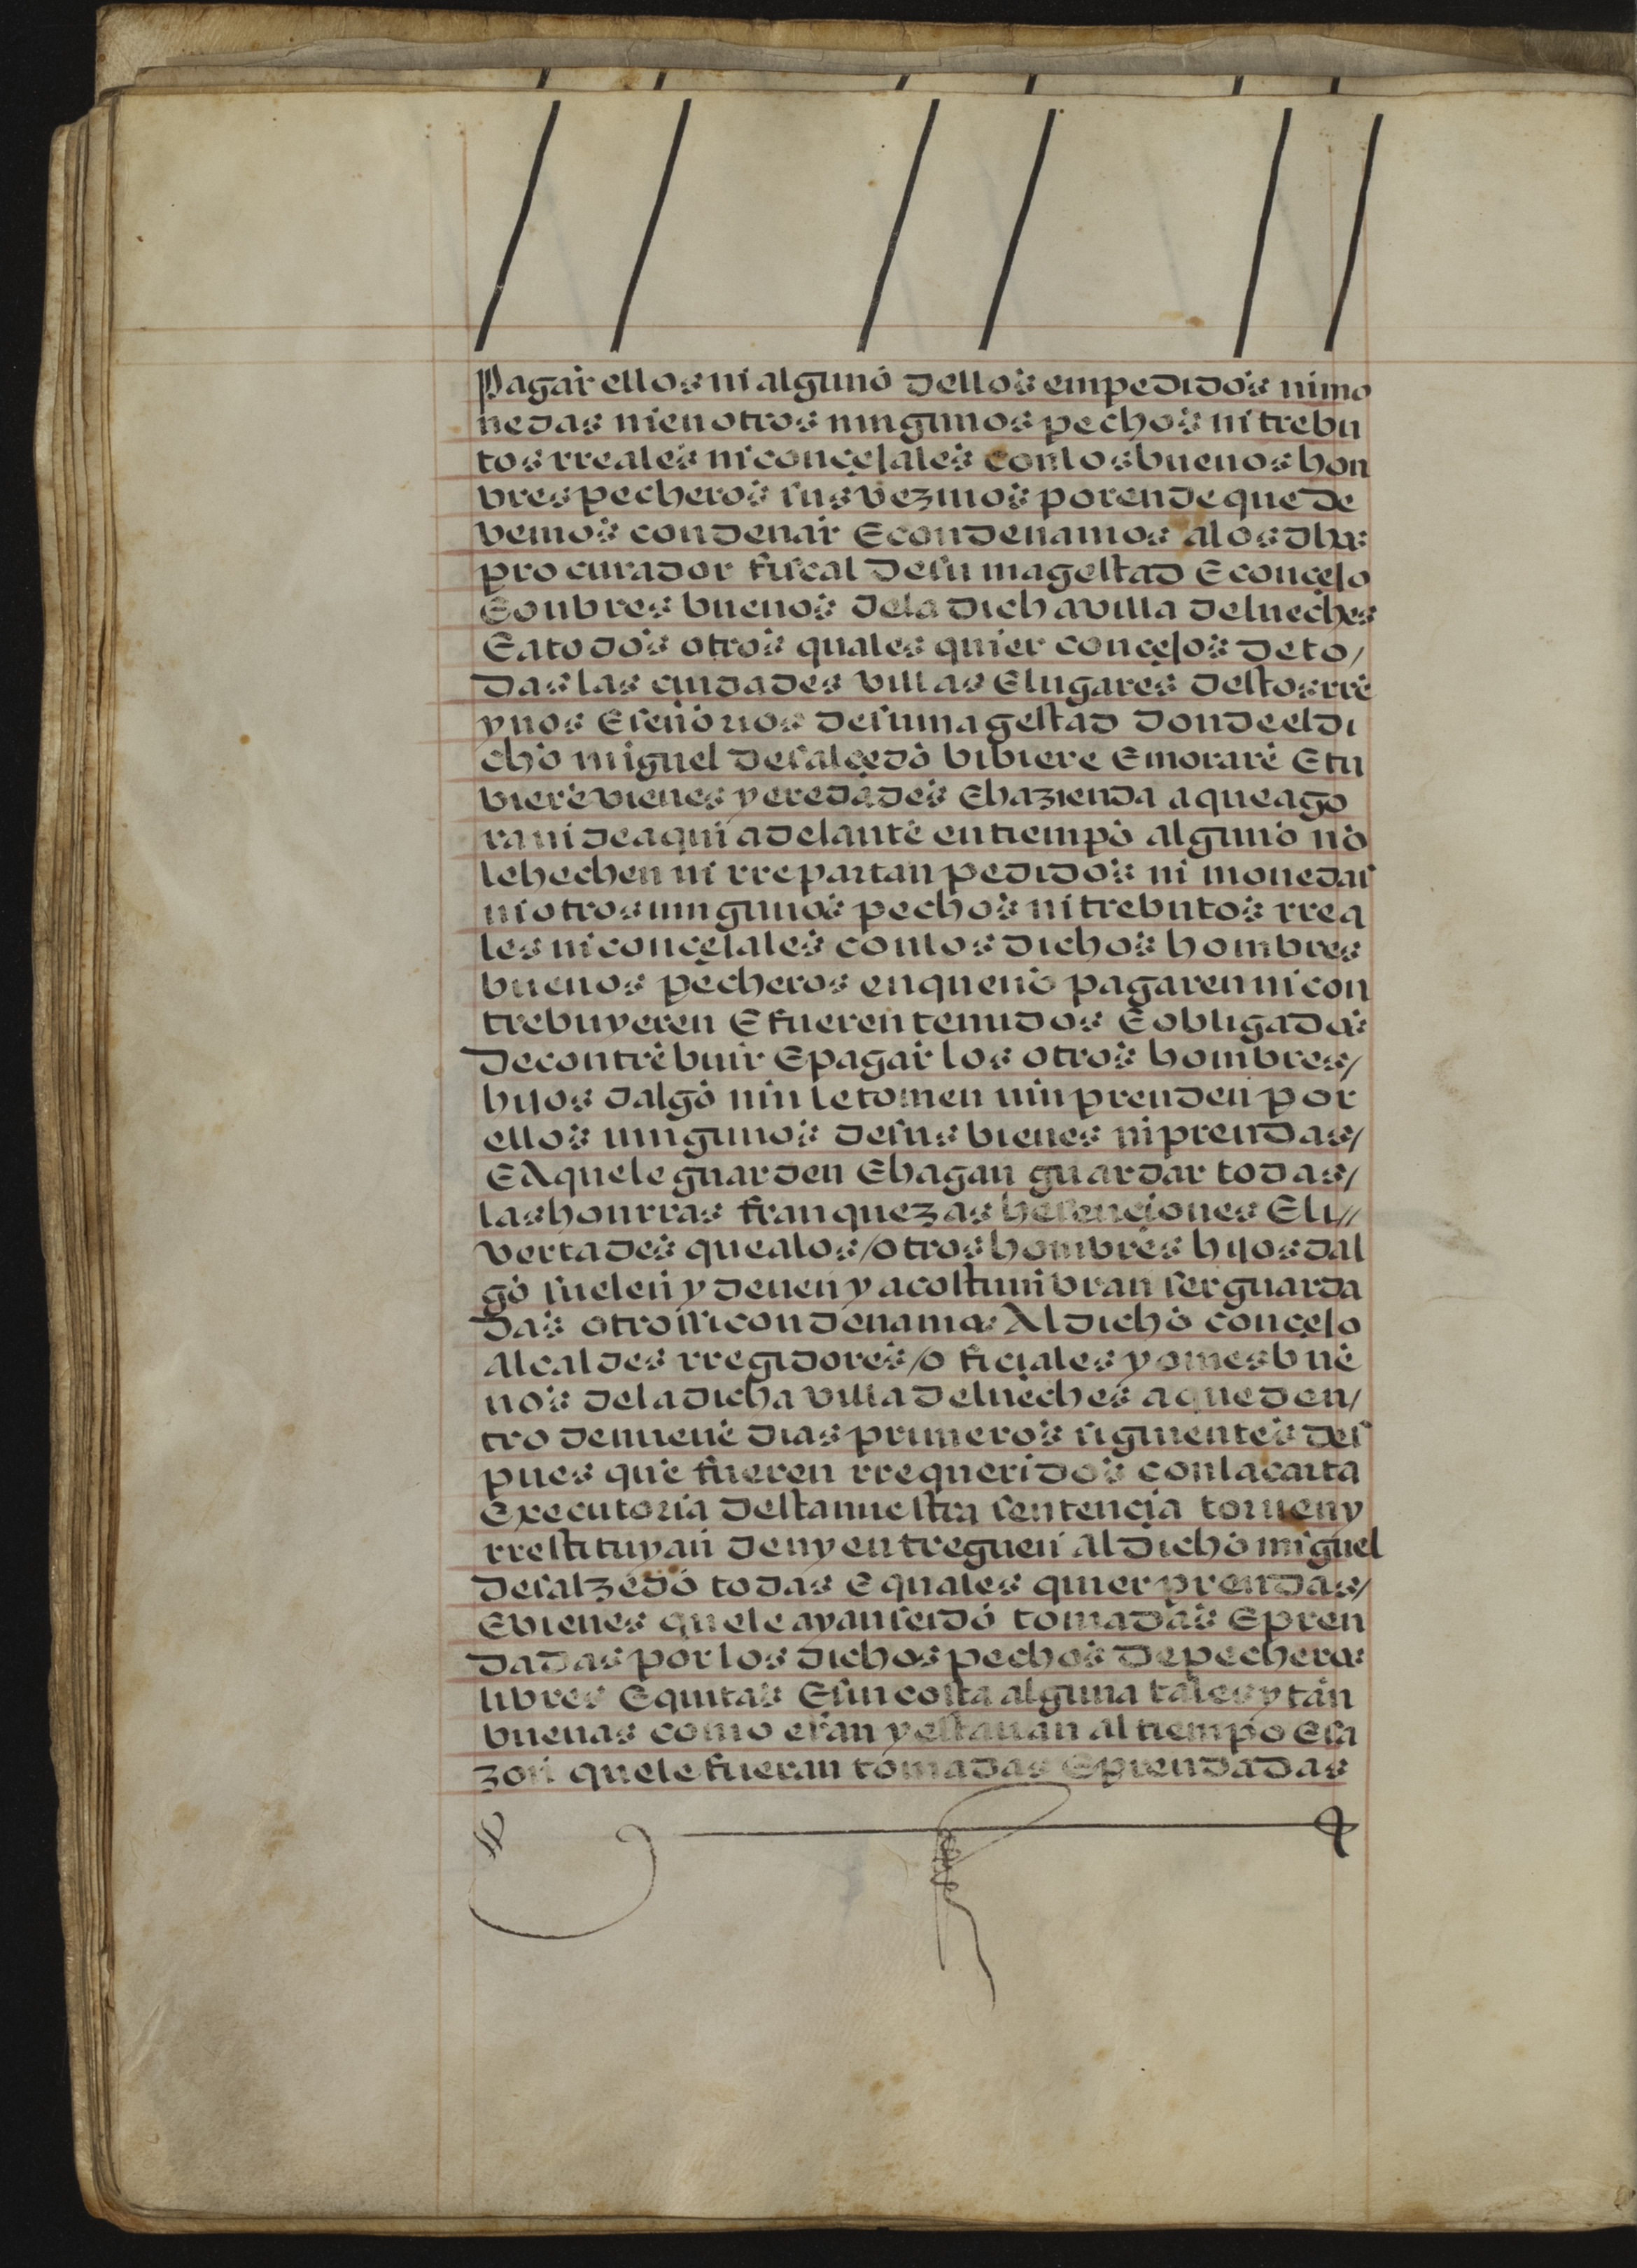 Pagar ellos ni alguno dellos empedidos nimo
nedas nien otros ningunos pechos ni trebu
tos rreales ni conçejales con los buenos hon
bres pecheros sus vezinos porende que de
vemos condenar E condenamos alos dhos
procurador fiscal de su magestad E conçejo
E onbres buenos dela dicha villa de lueches
E a todos otros quales quier conçejos de to/
das las ciudades villas E lugares destos rre
ynos E señorios de su magestad donde el di
cho miguel de salçedo bibiere E morare E tu
biere vienes y eredades E hazienda a que ago
ra ni de aqui adelante en tiempo alguno no
le hechen ni rrepartan pedidos ni monedas
ni otros ningunos pechos ni trebutos rrea
les ni conçejales con los dichos hombres
buenos pecheros en que no pagaren ni con
trebuyeren E fueren tenudos E obligados
de contrebuir E pagar los otros hombres/
hijos dalgo nin le tomen nin prenden por
ellos ningunos de sus bienes ni prendas/
E A que le guarden E hagan guardar todas/
las honrras franquezas hesenciones E li//
vertades que a los/otros hombres hijos dal
go suelen y deuen y acostumbran ser guarda
das otrosi condenamos Al dicho conçejo
Alcaldes rregidores/o ficiales y omes bue
nos dela dicha villa de lueches a que den/
tro de nueue dias primeros siguientes des
pues que fueren rrequeridos con la carta
executoria desta nuestra sentencia tornen y
rrestituyan den y entreguen al dicho miguel
de salzedo todas E quales quier prendas/
E vienes que le ayan seido tomadas E pren
dadas por los dichos pechos de pecheros
libres E quitas E sin costa alguna tales y tan
buenas como eran y estauan al tiempo E sa
zon que le fueran tomadas E prendadas